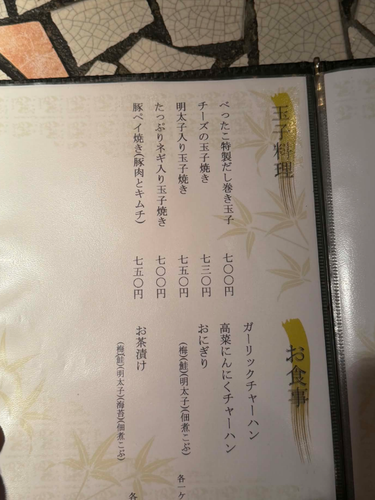 玉子料理
べったこ特製だし巻き玉子 七〇〇円
チーズの玉子焼き 七三〇円
明太子入り玉子焼き 七五〇円
たっぷりネギ入り玉子焼き 七〇〇円
豚ペイ焼き(豚肉とキムチ) 七五〇円
お食事
ガーリックチャーハン
高菜にんにくチャーハン
おにぎり
(梅)(鮭)(明太子)(佃煮こぶ)
各一ケ
お茶漬け
(梅)(鮭)(明太子)(海苔)(佃煮こぶ)
各